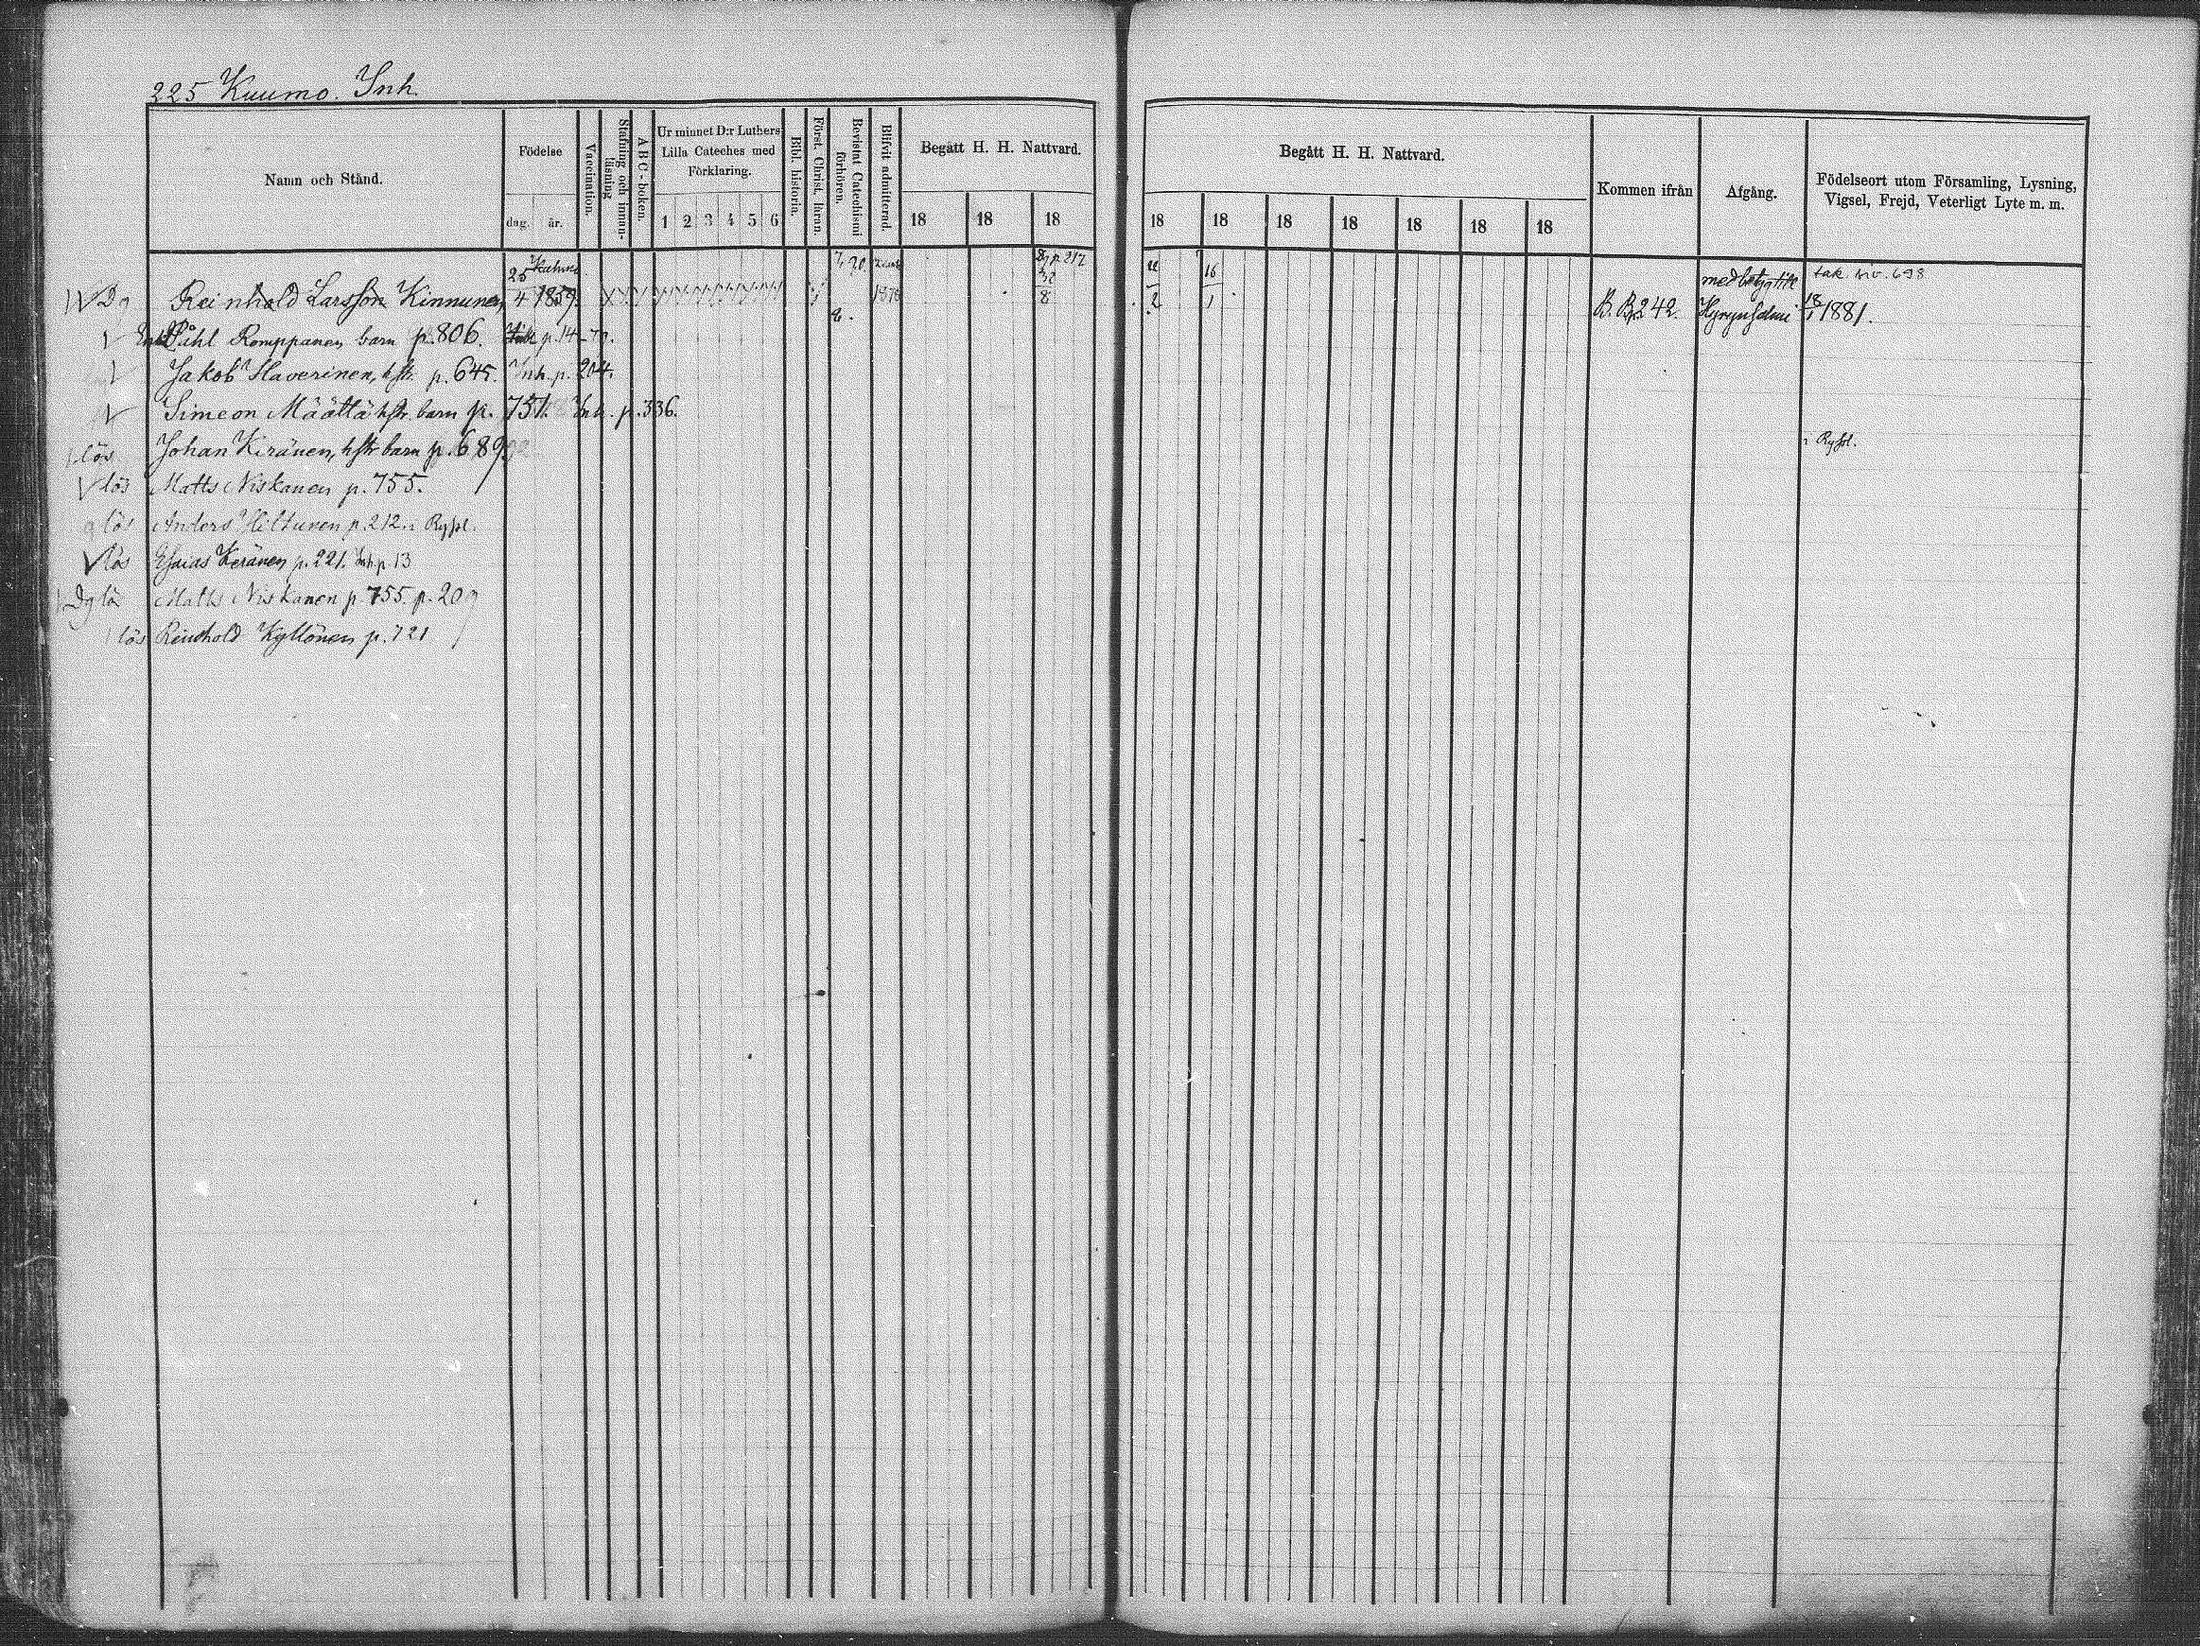 225 Kuumo. Inh.
Namn och Stånd.
Födelse
dag. år.
Vaccination.
Stafning och innanläsning
ABC-boken.
Ur minnet D:r Luthers Lilla Cateches med Förklaring.
1 2 3 4 5 6
Bibl. historia.
Förest. Christ. läran.
Bevistat Catechismi förhören.
Blifvit admitterad.
Begått H. H. Nattvard.
18 18 18
Begått H. H. Nattvard.
18 18 18 18 18 18 18
Kommen ifrån
Afgång.
Födelseort utom Församling, Lysning, Vigsel, Frejd, Veterligt Lyte m. m.
Reinhold Larsson Kinnunen, 25/4 1859. 1876 p. 217 8 2 16/1 B. B. 242. med betyg till Hyrynsalmi 18/1 1881. 698
Påhl Romppanen barn p. 806. p. 14
Jakob Haverinen, hstr. p. 645. Inh. p. 204.
Simeon Määttä hstr barn p. 751. Inh. p. 336.
lös Johan Keränen, hstr barn p. 689
Rysl.
lös Matts Niskanen p. 755.
lös Anders Hiltunen p. 212. Rysl.
lös Esaias Keränen p. 221. Inh. p. 13
Dg lös Matts Niskanen p. 755. p. 20
lös Reinhold Kyllönen p. 721